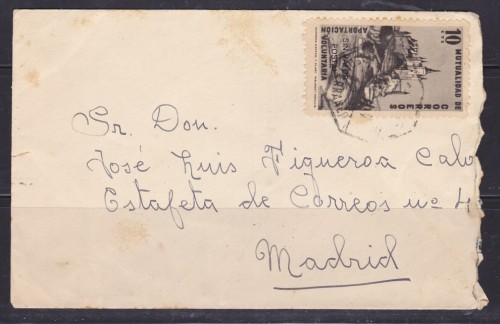 10
CTS
MUTUALIDAD DE
CORREOS
APORTACIÓN
VOLUNTARIA
Sr. Don.
José Luis Figueroa Calvo
Estafeta de Correos nº 4
Madrid